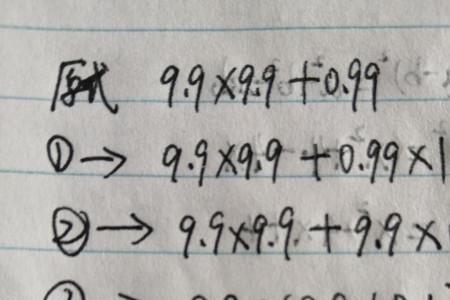 原式 9.9×9.9+0.99
①→ 9.9×9.9+0.99×1
②→ 9.9×9.9+9.9×